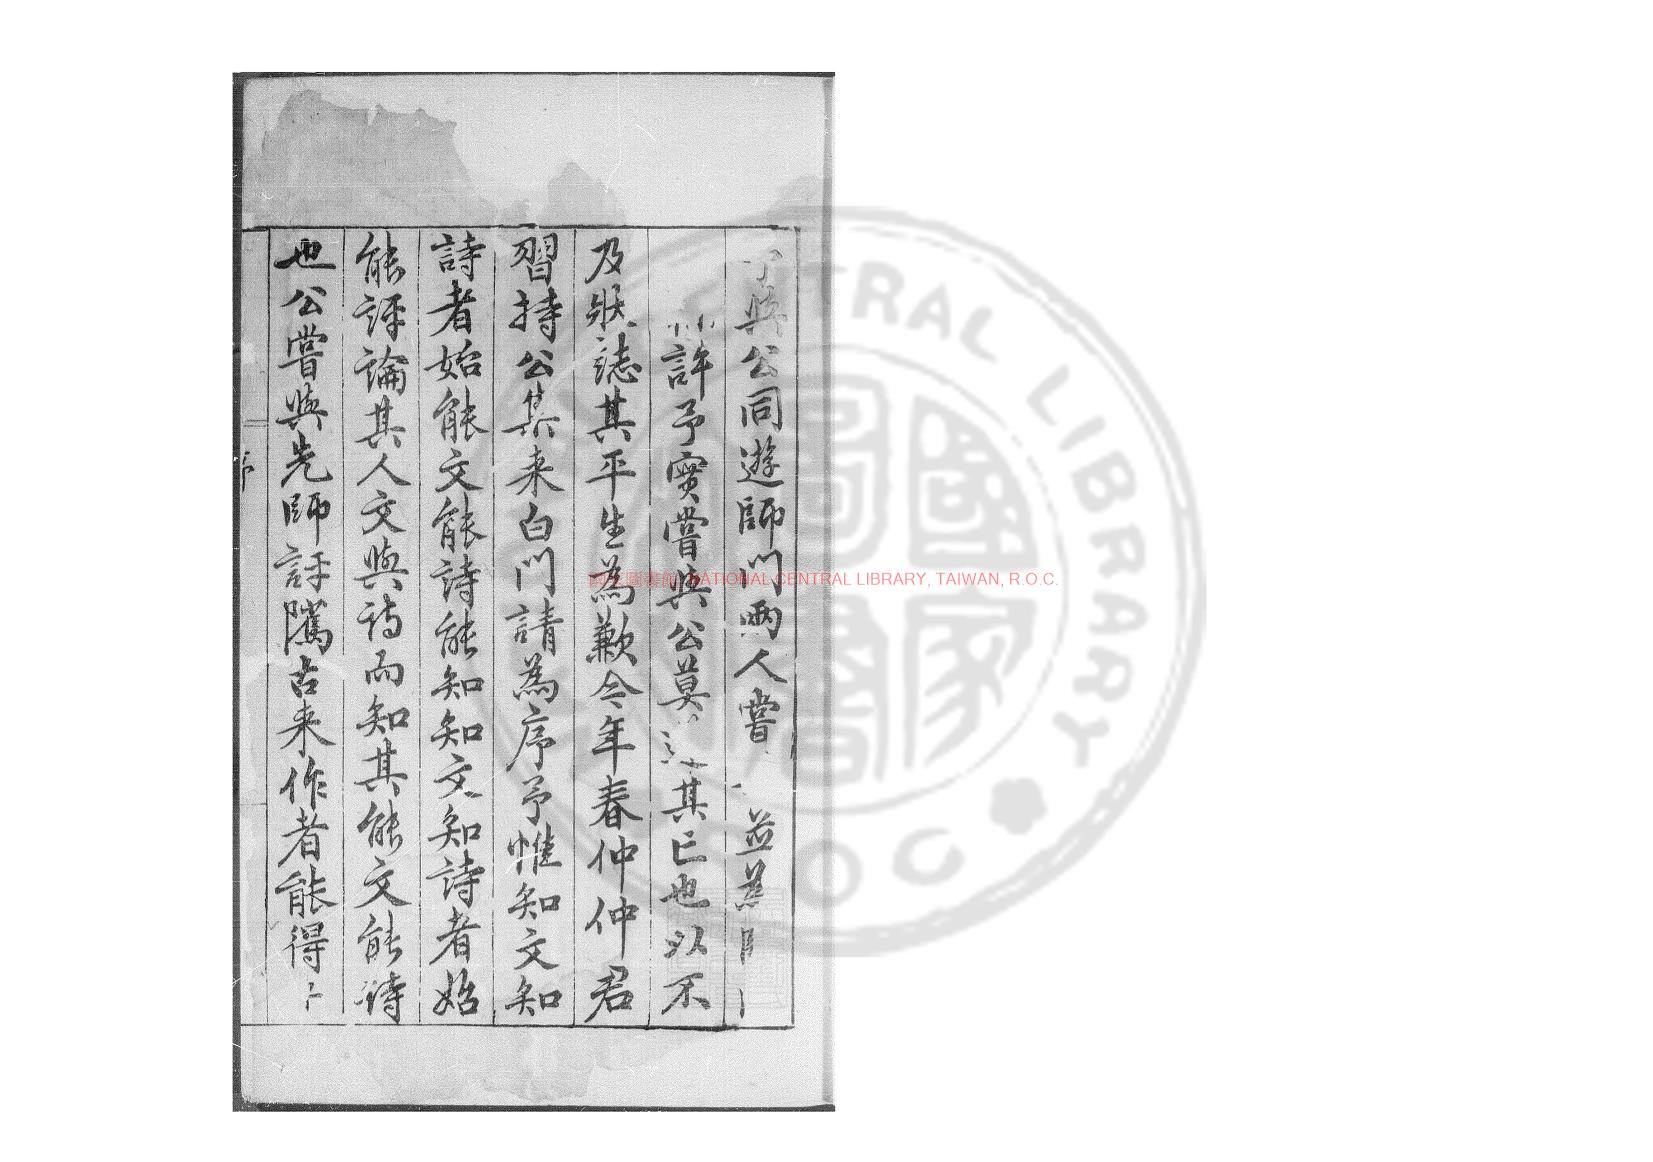 與公同遊師門兩人嘗並為
許予實嘗與公莫其已也以不
及狀誌其平生為歉今年春仲仲君
習持公集来白門請為序予惟知文知
詩者始能文能詩能知知文知詩者始
能評論其人文與詩而知其能文能詩
也公嘗與先師評隲古来作者能得
序
國家圖書館 NATIONAL CENTRAL LIBRARY, TAIWAN, R.O.C.
國家圖書館
CENTRAL LIBRARY